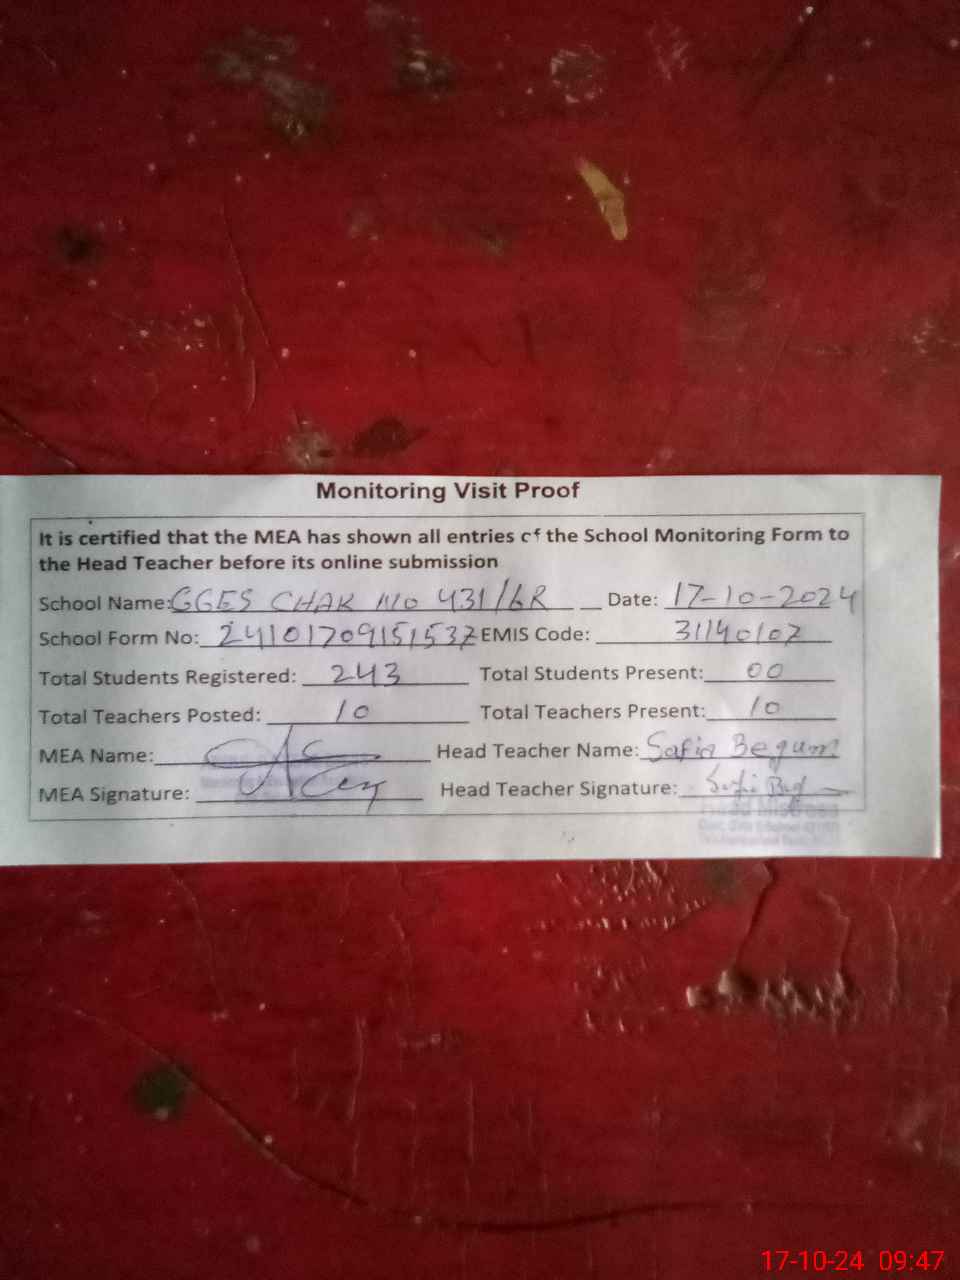 Monitoring Visit Proof
It is certified that the MEA has shown all entries of the School Monitoring Form to
the Head Teacher before its online submission
School Name: GGES CHAK NO 431/6R Date: 17-10-2024
School Form No: 24101709151537 EMIS Code: 31140107
Total Students Registered: 243 Total Students Present: 00
Total Teachers Posted: 10 Total Teachers Present: 10
MEA Name: Head Teacher Name: Safia Begum
MEA Signature: Head Teacher Signature:
Head Mistress
17-10-24 09:47